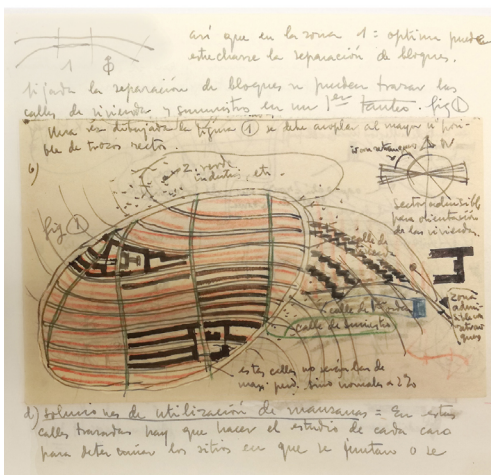 1
así que en la zona 1 = optima puede
estrecharse la separación de bloques.
fijada la separación de bloques se pueden trazar las
calles de vivienda y suministros en un 1er tanteo fig ①
Una vez dibujada la figura ① se debe acoplar al mayor nº posi-
ble de trozos rectos.
b)
Z. verde
industria, etc.
N
fig ①
sector admisible
para orientación
de las viviendas.
calle de
calle de vivienda
calle de suministro
zona
admi-
sible
estas calles no serán las de
max. pend. sino normales a 2%
d) soluciones de utilización de manzanas = En estas
calles trazadas hay que hacer el estudio de cada caso
para determinar los sitios en que se juntan o se